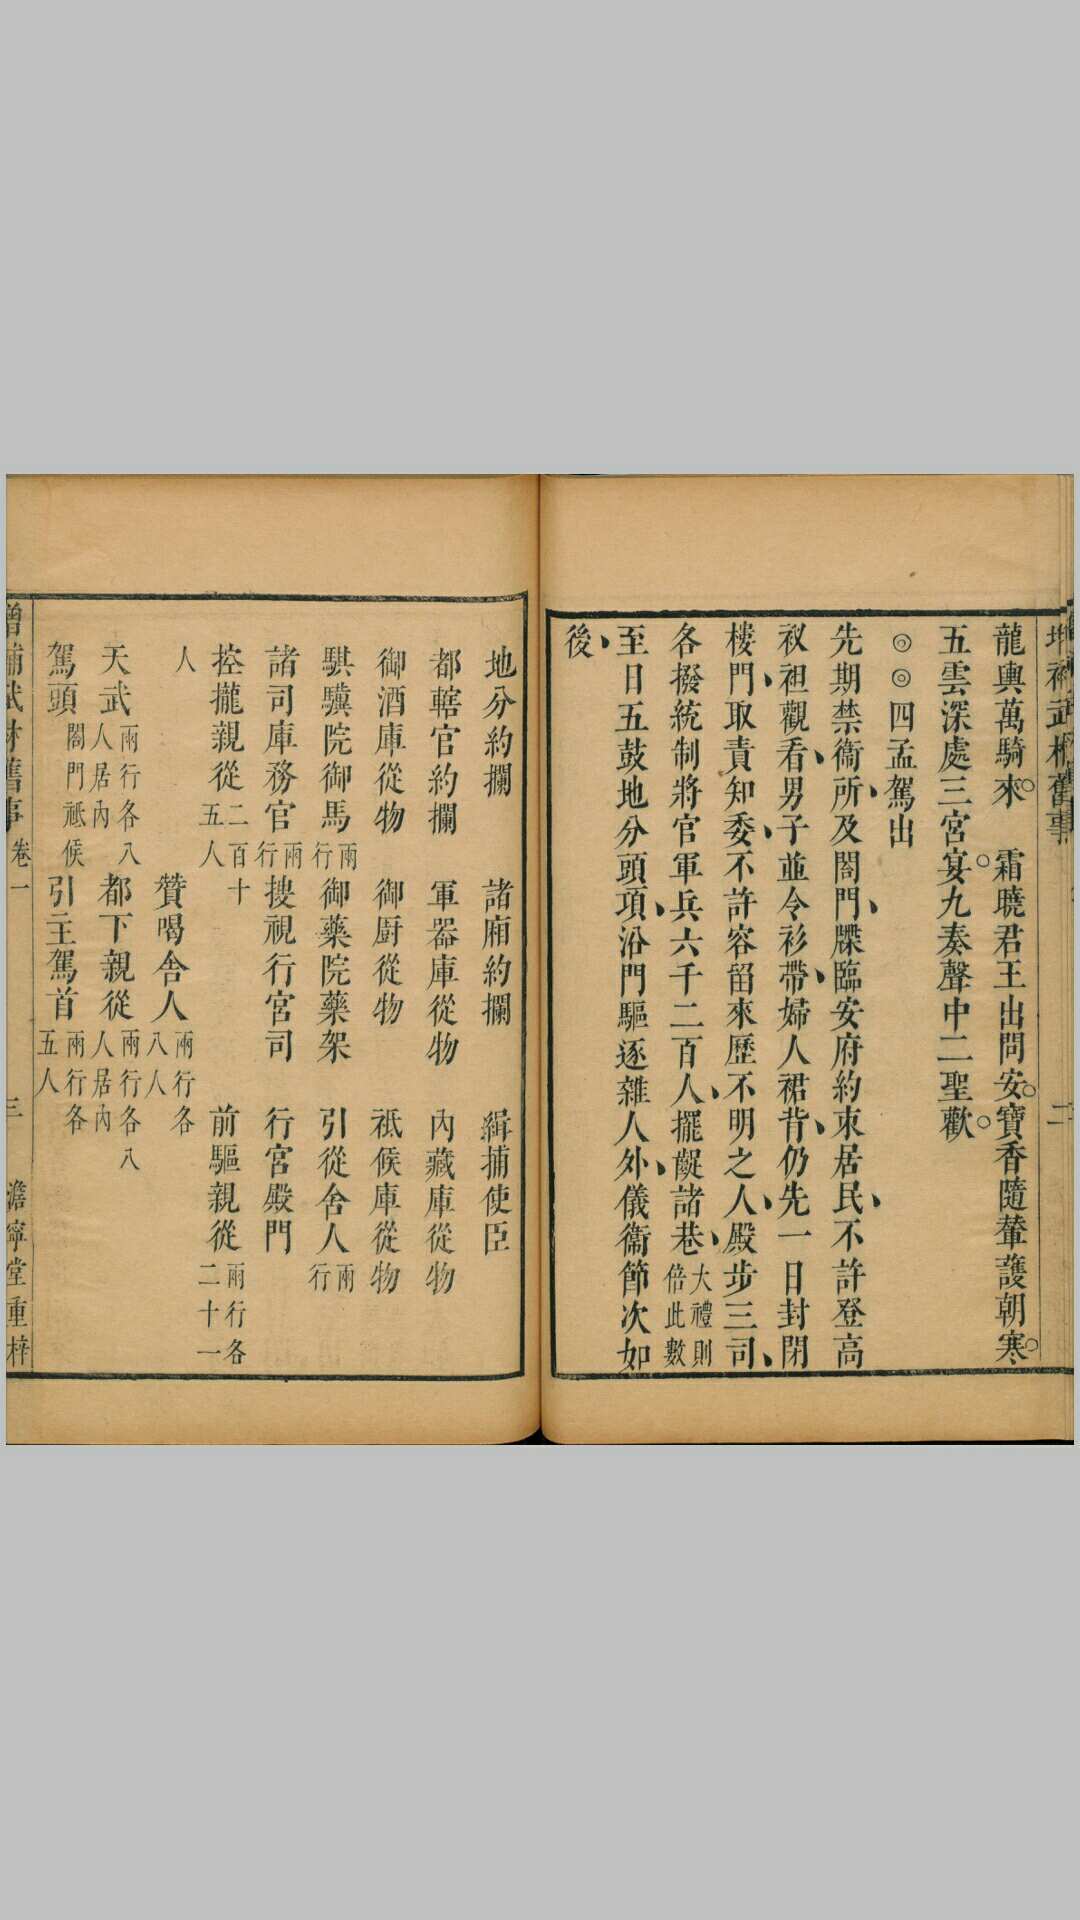 增補武林舊事 二
龍輿萬騎來 霜曉君王出問安寶香隨輦護朝寒
五雲深處三宮宴九奏聲中二聖歡
◎◎四孟駕出
先期禁衞所及閤門牒臨安府約束居民不許登高
衩袒觀看男子並令衫帶婦人裙背仍先一日封閉
樓門取責知委不許容留來歷不明之人殿步三司
各撥統制將官軍兵六千二百人擺齪諸巷大禮則倍此數
至日五鼓地分頭項沿門驅逐雜人外儀衞節次如
後
地分約攔 諸廂約攔 緝捕使臣
都轄官約攔 軍器庫從物 內藏庫從物
御酒庫從物 御厨從物 祗候庫從物
騏驥院御馬兩行 御藥院藥架 引從舍人兩行
諸司庫務官兩行 搜視行宮司 行宮殿門
控攏親從二百十五人 前驅親從兩行各二十一
人 贊喝舍人兩行各八人
天武兩行各八人居內 都下親從兩行各八人居內
駕頭閤門祗候 引主駕首兩行各五人
增補武林舊事 卷一 三 澹寧堂重梓